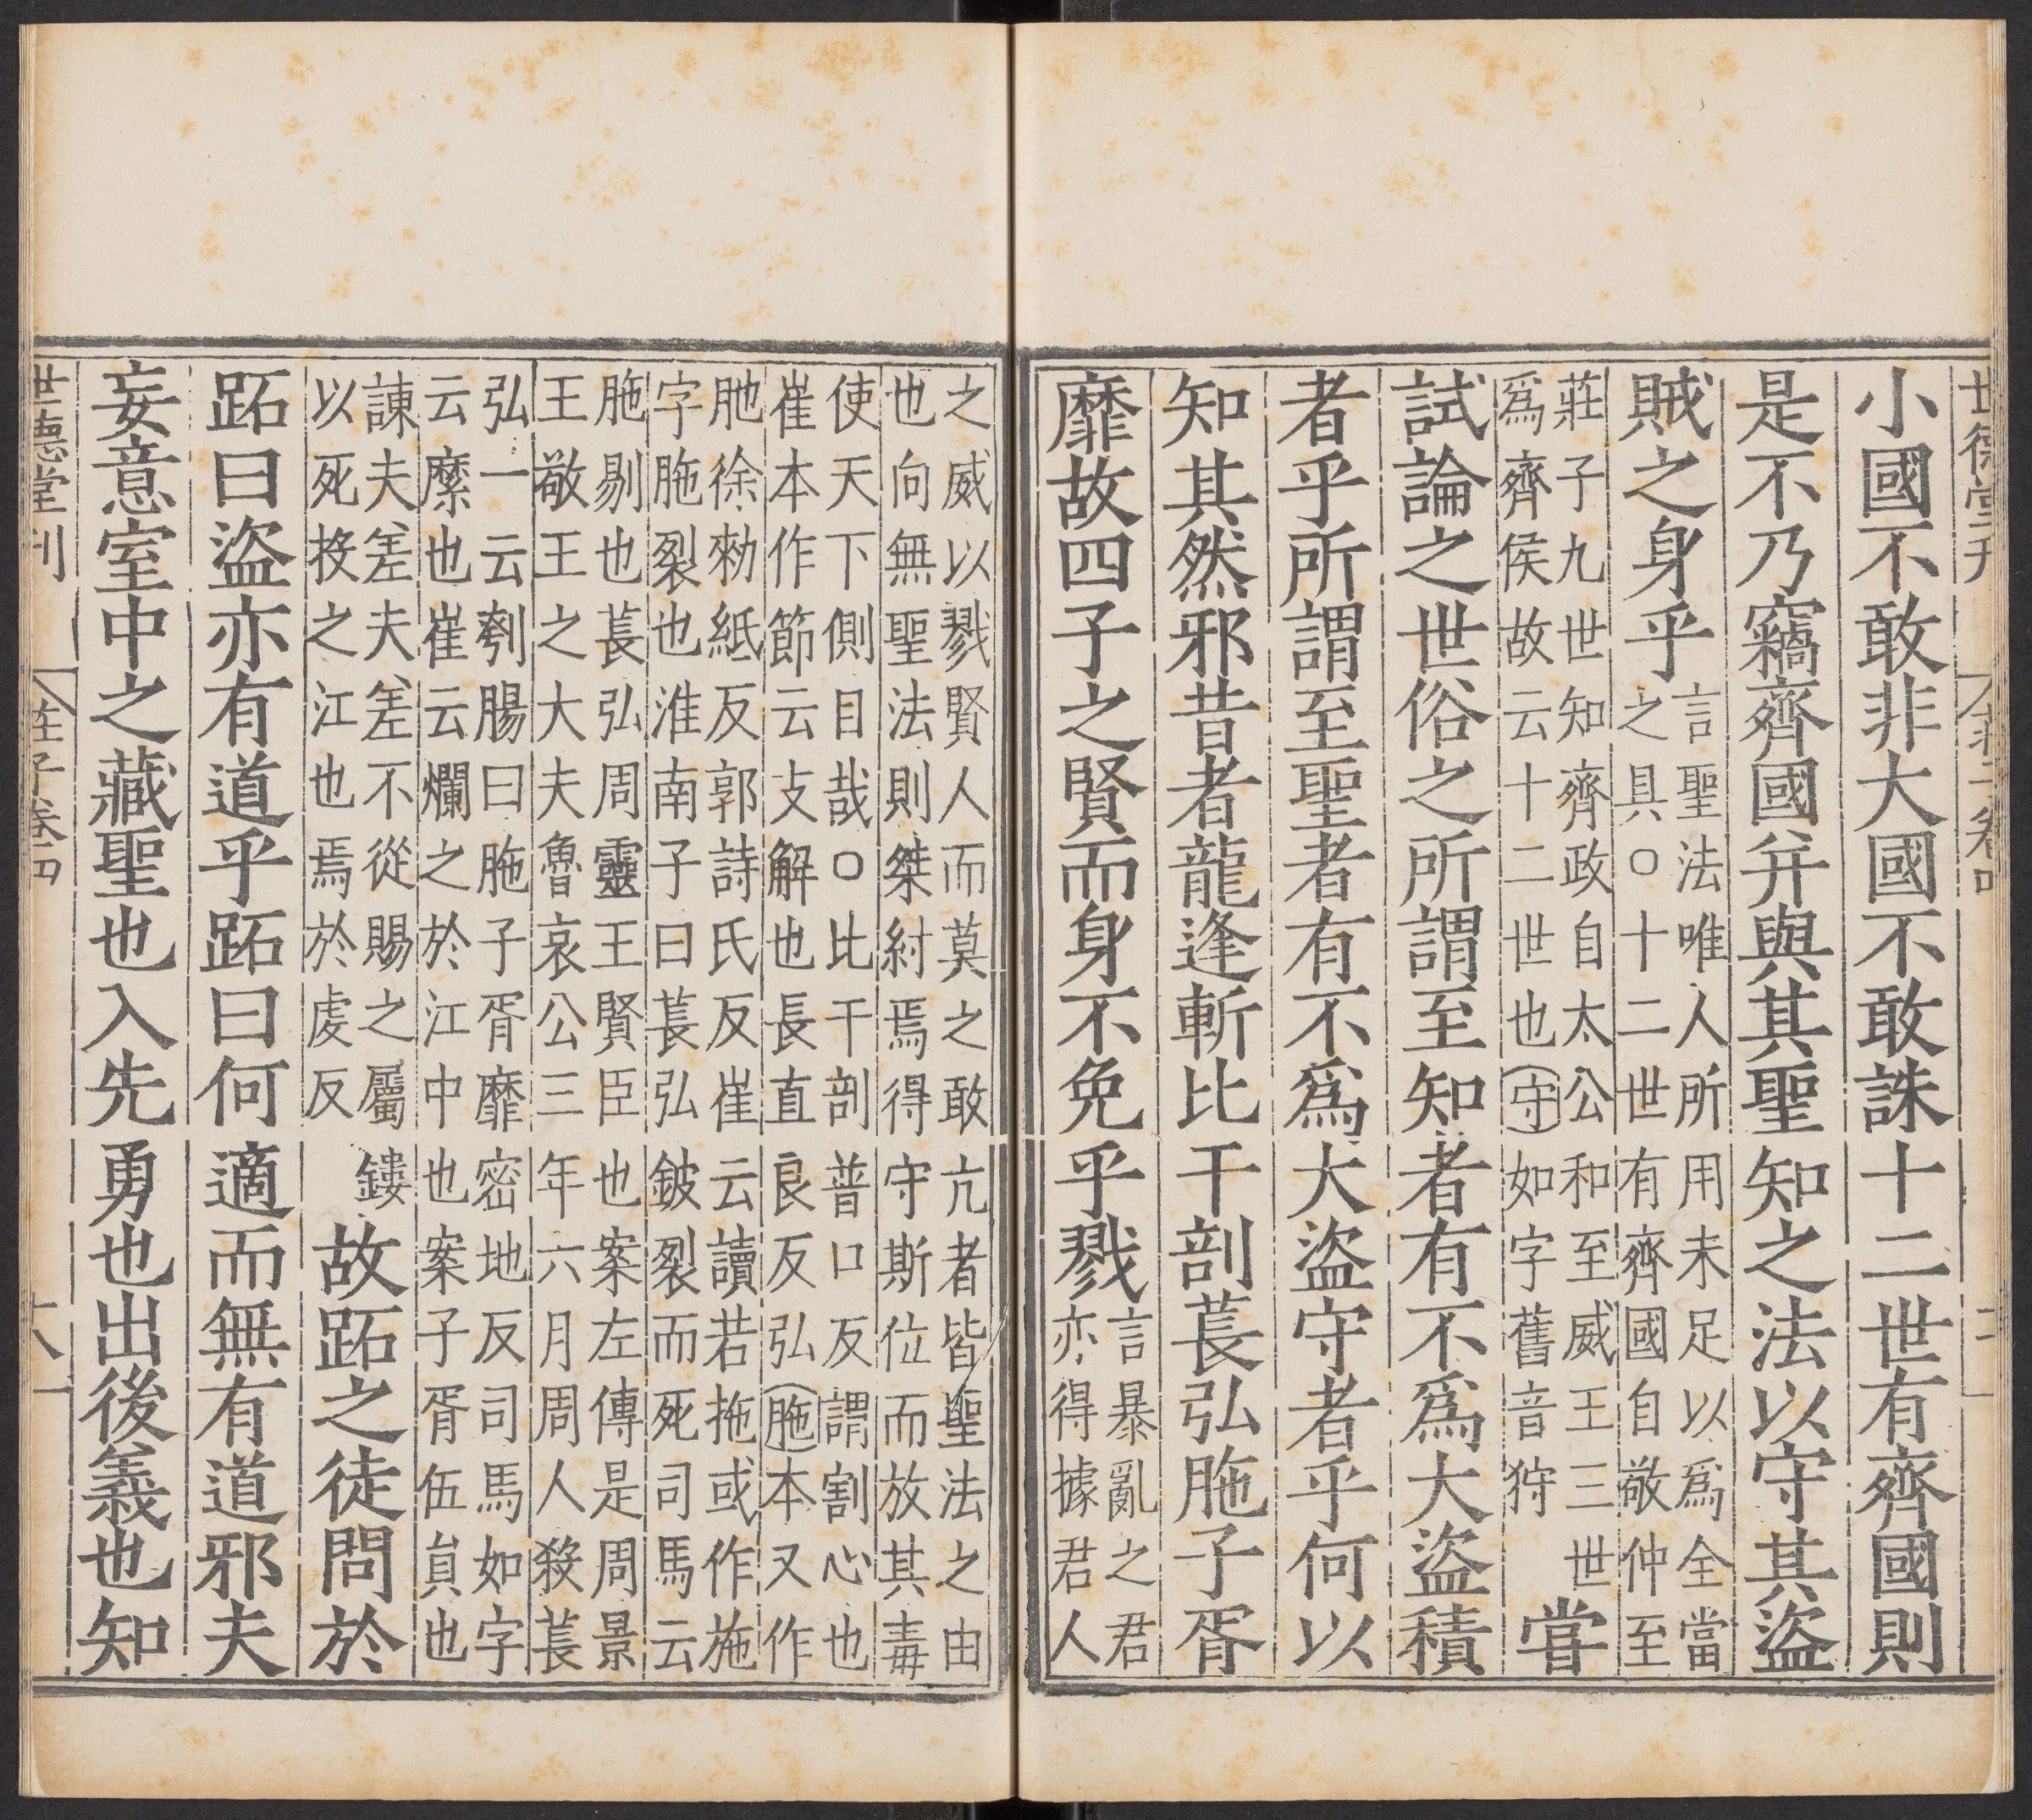 小國不敢非大國不敢誅十二世有齊國則
是不乃竊齊國并與其聖知之法以守其盜
賊之身乎言聖法唯人所用未足以爲全當
之具○十二世有齊國自敬仲至
莊子九世知齊政自太公和至威王三世
爲齊侯故云十二世也守如字舊音狩
嘗
試論之世俗之所謂至知者有不爲大盜積
者乎所謂至聖者有不爲大盜守者乎何以
知其然邪昔者龍逢斬比干剖萇弘胣子胥
靡故四子之賢而身不免乎戮言暴亂之君
亦得據君人
之威以戮賢人而莫之敢亢者皆聖法之由
也向無聖法則桀紂焉得守斯位而放其毒
使天下側目哉○比干剖普口反謂割心也
崔本作節云支解也長直良反弘胣本又作
肔徐勑紙反郭詩氏反崔云讀若拖或作施
字胣裂也淮南子曰萇弘鈹裂而死司馬云
胣剔也萇弘周靈王賢臣也案左傳是周景
王敬王之大夫魯哀公三年六月周人殺萇
弘一云刳腸曰胣子胥靡密地反司馬如字
云縻也崔云爛之於江中也案子胥伍員也
諫夫差夫差不從賜之屬鏤
以死投之江也焉於虔反
故跖之徒問於
跖曰盜亦有道乎跖曰何適而無有道邪夫
妄意室中之藏聖也入先勇也出後義也知
世德堂刊
莊子卷四
十八